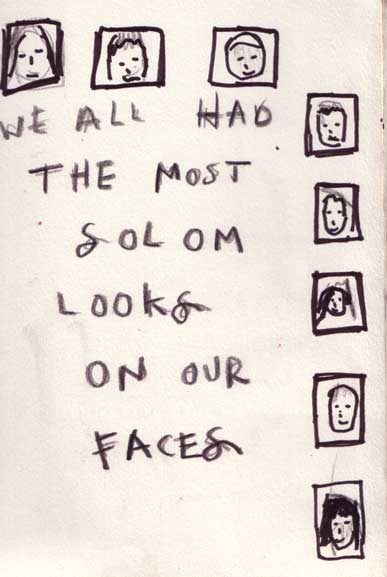 WE ALL HAD
THE MOST
SOLOM
LOOKS
ON OUR
FACES